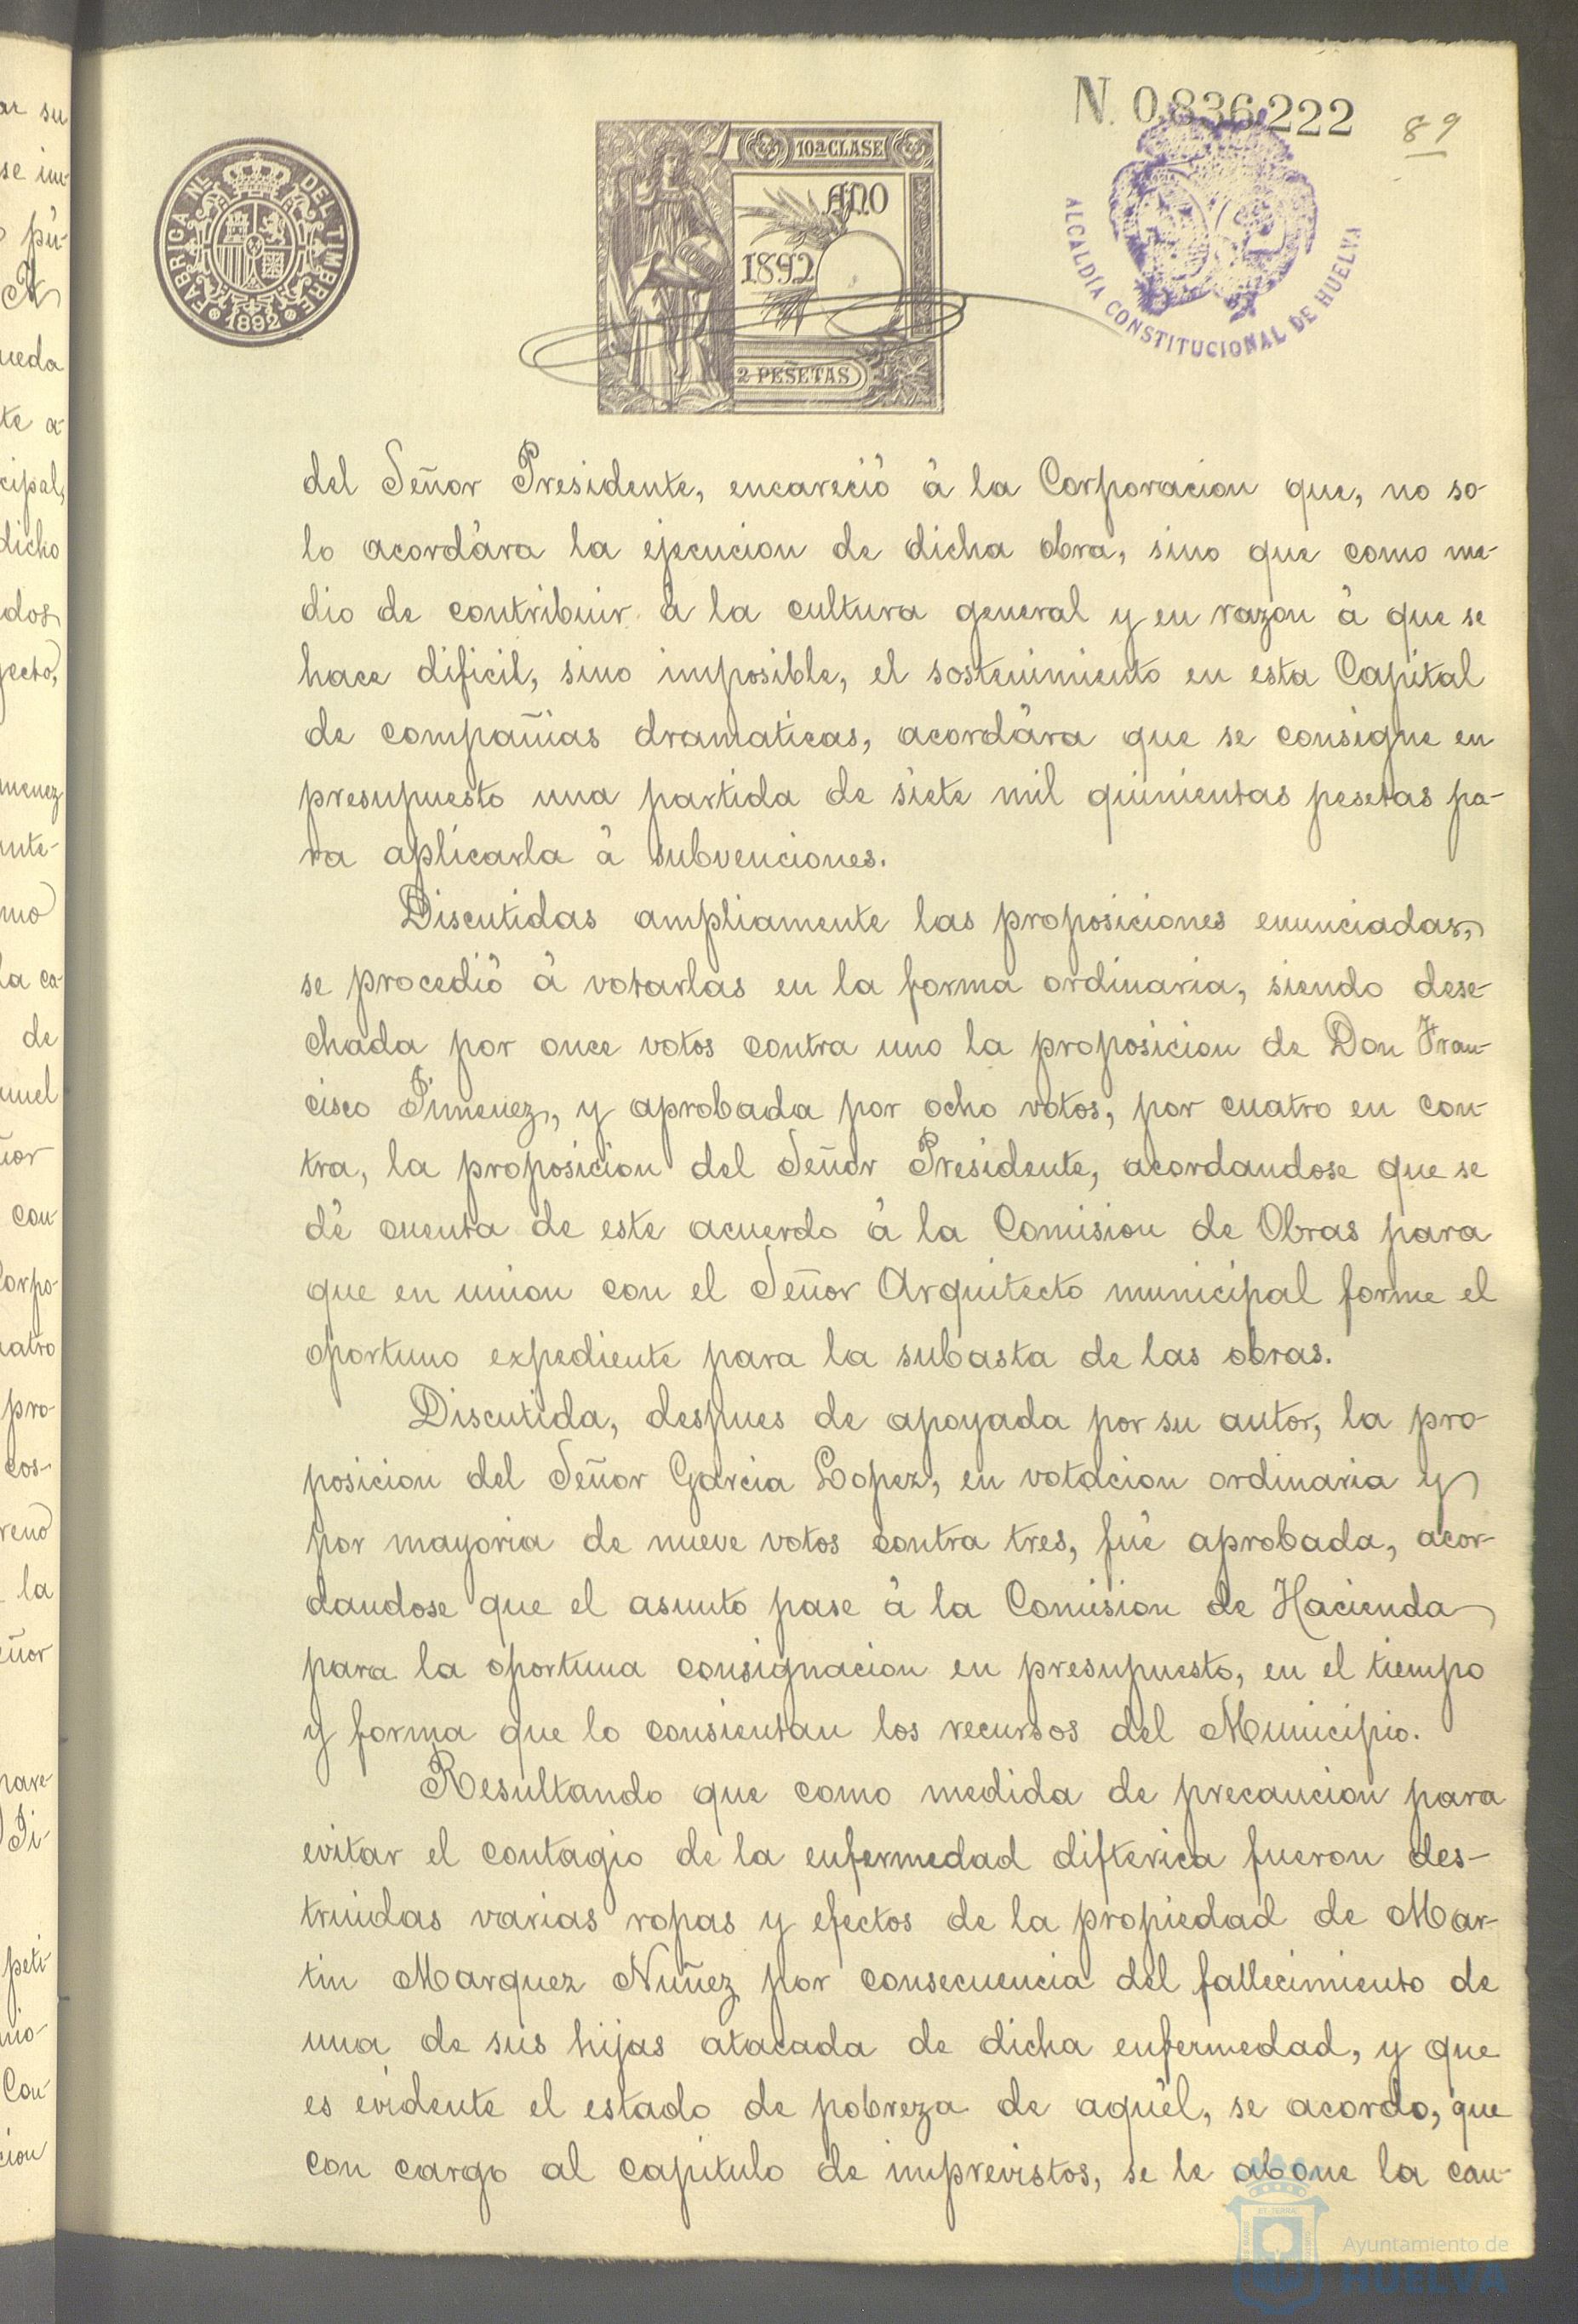 N. 0,836,222
89
FABRICA NL. DEL TIMBRE
1892
10ª CLASE
AÑO
1892
2 PESETAS
ALCALDÍA CONSTITUCIONAL DE HUELVA
del Señor Presidente, encareció á la Corporacion que, no so-
lo acordára la ejecucion de dicha obra, sino que como me-
dio de contribuir á la cultura general y en razon á que se
hace dificil, sino imposible, el sostenimiento en esta Capital
de compañias dramaticas, acordára que se consigne en
presupuesto una partida de siete mil quinientas pesetas pa-
ra aplicarla á subvenciones.
Discutidas ampliamente las proposiciones enunciadas,
se procedió á votarlas en la forma ordinaria, siendo dese-
chada por once votos contra uno la proposicion de Don Fran-
cisco Jimenez, y aprobada por ocho votos, por cuatro en con-
tra, la proposicion del Señor Presidente, acordandose que se
dé cuenta de este acuerdo á la Comision de Obras para
que en union con el Señor Arquitecto municipal forme el
oportuno expediente para la subasta de las obras.
Discutida, despues de apoyada por su autor, la pro-
posicion del Señor Garcia Lopez, en votacion ordinaria y
por mayoria de nueve votos contra tres, fué aprobada, acor-
dandose que el asunto pase á la Comision de Hacienda
para la oportuna consignacion en presupuesto, en el tiempo
y forma que lo consientan los recursos del Municipio.
Resultando que como medida de precaucion para
evitar el contagio de la enfermedad difterica fueron des-
truidas varias ropas y efectos de la propiedad de Mar-
tin Marquez Nuñez por consecuencia del fallecimiento de
una de sus hijas atacada de dicha enfermedad, y que
es evidente el estado de pobreza de aquél, se acordo, que
con cargo al capitulo de imprevistos, se le abone la can-
Ayuntamiento de
HUELVA